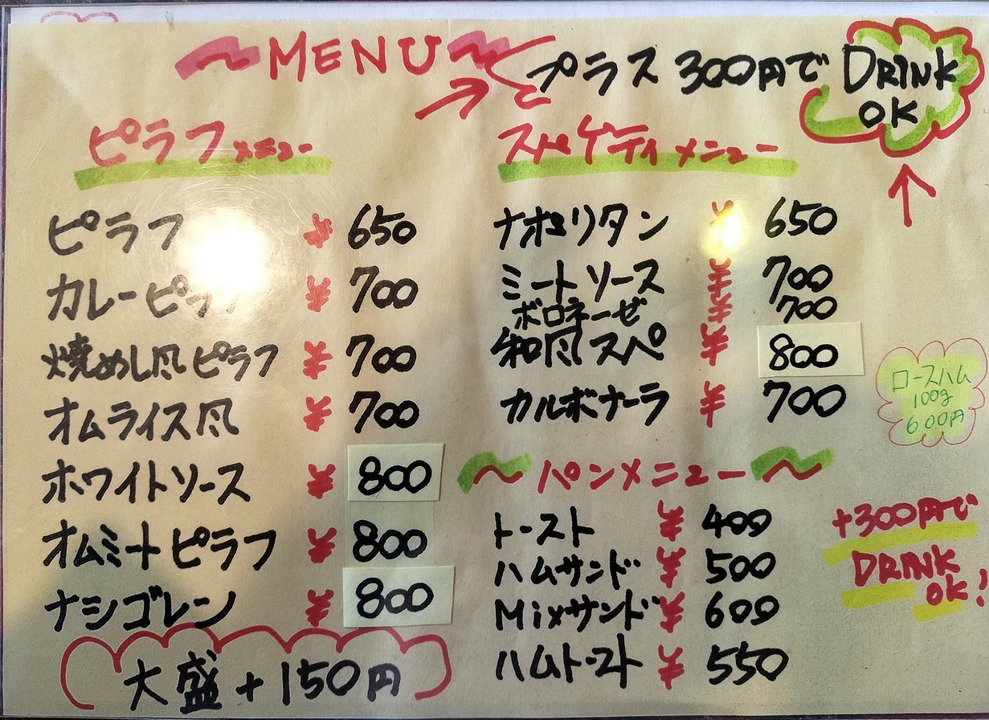 ~MENU~
プラス 300円で DRINK OK
ピラフメニュー
ピラフ ¥ 650
カレーピラフ ¥ 700
焼めし風ピラフ ¥ 700
オムライス風 ¥ 700
ホワイトソース ¥ 800
オムミートピラフ ¥ 800
ナシゴレン ¥ 800
大盛+150円
スパゲティメニュー
ナポリタン ¥ 650
ミートソース ¥ 700
ボロネーゼ ¥ 700
和風スパ ¥ 800
カルボナーラ ¥ 700
~パンメニュー~
トースト ¥ 400
ハムサンド ¥ 500
Mixサンド ¥ 600
ハムトースト ¥ 550
ロースハム
100g
600円
+300円で
DRINK
OK!